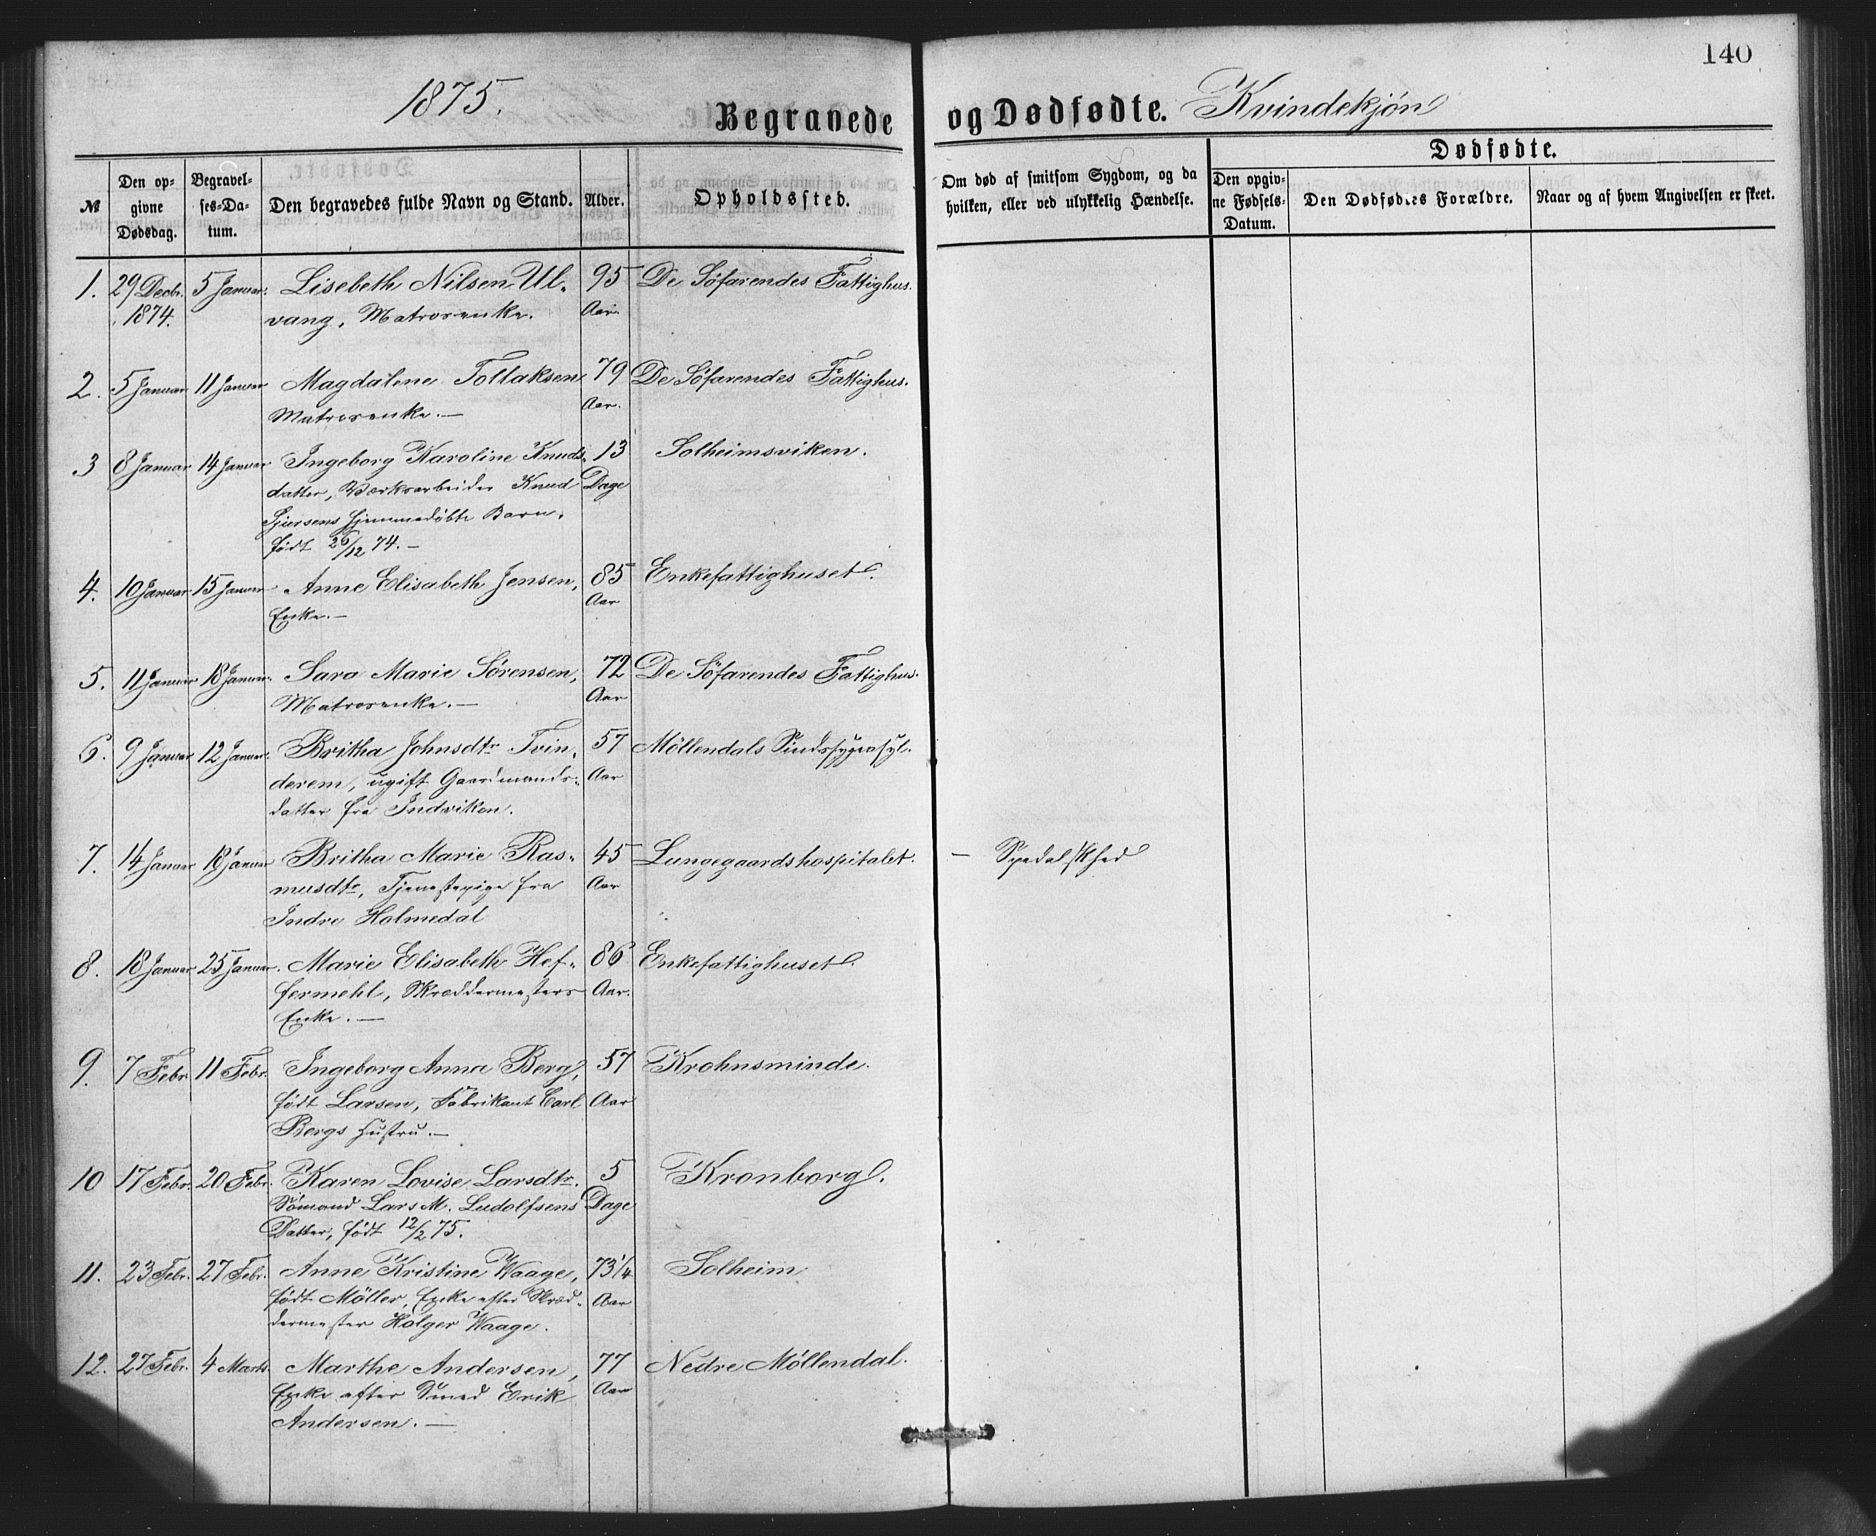 140
1875.
Begravede og Dødfødte. Kvindekjøn
№
Den op-
givne
Dødsdag.
Begravel-
ses-Da-
tum.
Den begravedes fulde Navn og Stand.
Alder.
Opholdssted.
Om død af smitsom Sygdom, og da
hvilken, eller ved ulykkelig Hændelse.
Dødfødte.
Den opgiv-
ne Fødsels-
Datum.
Den Dødfødtes Forældre.
Naar og af hvem Angivelsen er skeet.
1. 29 Decbr. 5 Januar. Lisebeth Nilsen Ul- 95 De Söfarendes Fattighus.
1874. vang, Matrosenke. Aar.
2. 5 Januar 11 Januar Magdalene Tollaksen 79 De Söfarendes Fattighus.
Matrosenke. — Aar.
3 8 Januar 14 Januar Ingeborg Karoline Knuds- 13 Solheimsviken.
datter, Værksarbeider Knud Dage
Sjursens hjemmedøbte Barn,
født 26/12 74. —
4. 10 Januar 15 Januar Anne Elisabeth Jensen, 85 Enkefattighuset.
Enke. — Aar
5. 11 Januar 18 Januar. Sara Marie Sörensen, 72 De Söfarendes Fattighus.
Matrosenke. — Aar
6. 9 Januar 12 Januar. Britha Johnsdtr Tvin- 57 Möllendals Sindssygeasyl.
derem, ugift Gaardmands- Aar
datter fra Indviken.
7. 14 Januar 18 Januar Britha Marie Ras- 45 Lungegaardshospitalet. — Spedalskhed
musdtr, Tjenestepige fra Aar
Indre Holmedal
8. 18 Januar 25 Januar. Marie Elisabeth Hef- 86 Enkefattighuset.
fermehl, Skreddermesters Aar.
Enke. —
9. 7 Febr. 11 Febr. Ingeborg Anna Berg, 57 Krohnsminde.
født Larsen, Fabrikant Carl Aar
Bergs Hustru. —
10 17 Febr. 20 Febr. Karen Lovise Larsdtr. 5 Kronborg.
Sömand Lars M. Ludolfsens Dage
Datter, født 12/2 75.
11. 23 Febr. 27 Febr. Anne Kristine Waage, 73 1/4 Solheim
født Möller, Enke efter Skræd- Aar
dermester Holger Waage.
12. 27 Febr. 4 Marts. Marthe Andersen, 77 Nedre Möllendal.
Enke efter Smed Erik Aar
Andersen. —